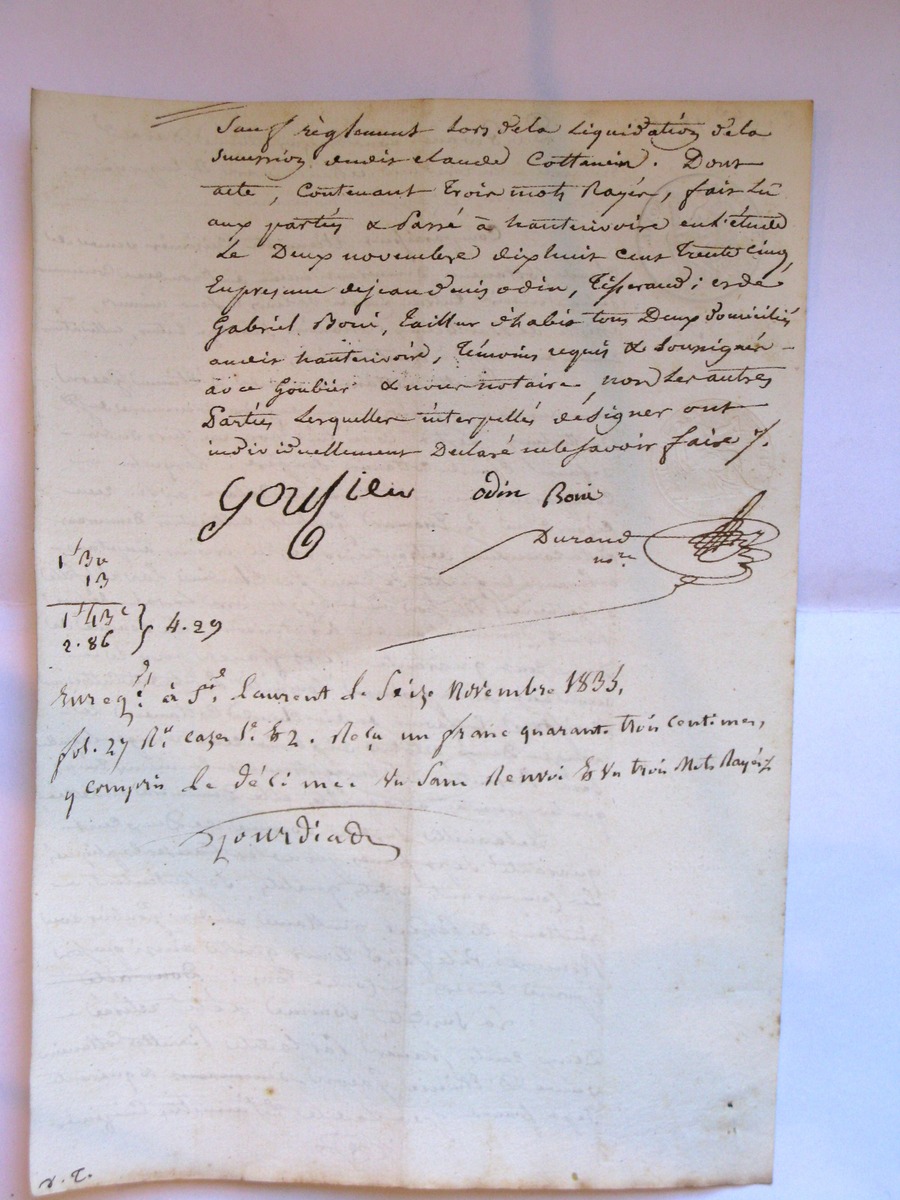 Sauf règlement Lors de la Liquidation de la
succession dudit claude Cottancin. Dont
acte, Contenant trois mots Rayés, fait Lu
aux partiés & Passé à hauterivoire en L'étude
Le Deux novembre dixhuit cent trente cinq,
En presence de jean denis odin, Tisserand; et de
Gabriel Boni, tailleur d'habis tous Deux domiciliés
audit hauterivoire, témoins requis & soussignés
avec Goubier & nous notaire, non Les autres
Partiés Lesquelles interpellés de signer ont
individuellement Declaré ne le savoir faire ⁊.
odin Boni
Durand
nore
1 30
13
1 43 c
2.86 } 4.29
Enregé à St laurent le Seize Novembre 1835,
fol. 27 Ro. cazes 1e. & 2. Reçu un franc quarante trois centimes,
y compris le décime Vu Sans Renvoi & Vu trois Mots Rayés
v. T.